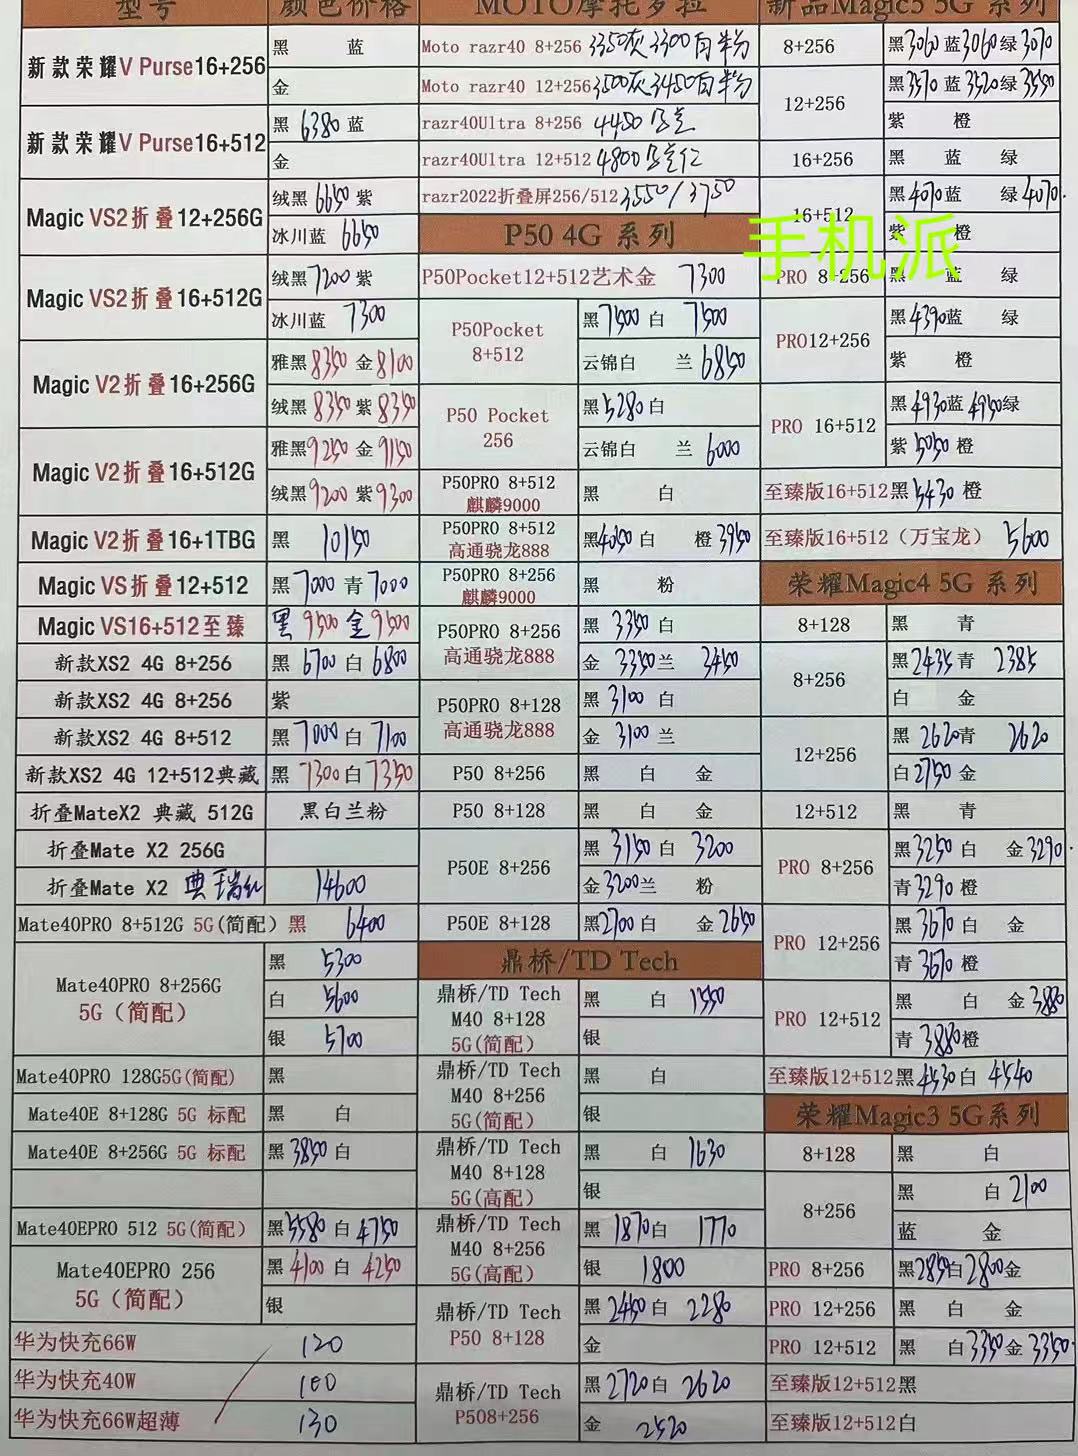 型号 颜色价格
新款荣耀V Purse16+256 黑 蓝
金
新款荣耀V Purse16+512 黑 6380 蓝
金
Magic VS2折叠12+256G 绒黑 6650 紫
冰川蓝 6650
Magic VS2折叠16+512G 绒黑 7200 紫
冰川蓝 7300
Magic V2折叠16+256G 雅黑 8350 金 8100
绒黑 8350 紫 8350
Magic V2折叠16+512G 雅黑 9250 金 9150
绒黑 9200 紫 9300
Magic V2折叠16+1TBG 黑 10150
Magic VS折叠12+512 黑 7000 青 7000
Magic VS16+512至臻 黑 9500 金 9500
新款XS2 4G 8+256 黑 6700 白 6800
新款XS2 4G 8+256 紫
新款XS2 4G 8+512 黑 7000 白 7100
新款XS2 4G 12+512典藏 黑 7300 白 7350
折叠MateX2 典藏 512G 黑白兰粉
折叠Mate X2 256G
折叠Mate X2 典 瑞红 14600
Mate40PRO 8+512G 5G(简配) 黑 6400
Mate40PRO 8+256G
5G（简配）
黑 5300
白 5600
银 5700
Mate40PRO 128G5G(简配) 黑
Mate40E 8+128G 5G 标配 黑 白
Mate40E 8+256G 5G 标配 黑 3850 白
Mate40EPRO 512 5G(简配) 黑 5580 白 4750
Mate40EPRO 256
5G（简配）
黑 4100 白 4250
银
华为快充66W 120
华为快充40W 100
华为快充66W超薄 130
MOTO摩托罗拉
Moto razr40 8+256 3350灰 3300白 粉
Moto razr40 12+256 3500灰 3450白 粉
razr40Ultra 8+256 4450
razr40Ultra 12+512 4800
razr2022折叠屏256/512 3550/3750
P50 4G 系列
P50Pocket12+512艺术金 7300
P50Pocket
8+512
黑 7500 白 7500
云锦白 兰 6850
P50 Pocket
256
黑 5280 白
云锦白 兰 6000
P50PRO 8+512
麒麟9000
黑 白
P50PRO 8+512
高通骁龙888
黑 4050 白 橙 3950
P50PRO 8+256
麒麟9000
黑 粉
P50PRO 8+256
高通骁龙888
黑 3350 白
金 3350 兰 3450
P50PRO 8+128
高通骁龙888
黑 3100 白
金 3100 兰
P50 8+256 黑 白 金
P50 8+128 黑 白 金
P50E 8+256 黑 3150 白 3200
金 3200 兰 粉
P50E 8+128 黑 2700 白 金 2650
鼎桥/TD Tech
鼎桥/TD Tech
M40 8+128
5G(简配)
黑 白 1550
银
鼎桥/TD Tech
M40 8+256
5G(简配)
黑 白
银
鼎桥/TD Tech
M40 8+128
5G(高配)
黑 白 1630
银
鼎桥/TD Tech
M40 8+256
5G(高配)
黑 1870 白 1770
银 1800
鼎桥/TD Tech
P50 8+128
黑 2450 白 2280
金
鼎桥/TD Tech
P508+256
黑 2720 白 2620
金 2520
新品Magic5 5G 系列
8+256 黑 3060 蓝 3060 绿 3070
12+256 黑 3570 蓝 3520 绿 3550
紫 橙
16+256 黑 蓝 绿
16+512 黑 4070 蓝 绿 4070
紫 橙
手机派
PRO 8+256 黑 蓝 绿
PRO12+256 黑 4390 蓝 绿
紫 橙
PRO 16+512 黑 4930 蓝 4950 绿
紫 5050 橙
至臻版16+512 黑 5430 橙
至臻版16+512（万宝龙） 5600
荣耀Magic4 5G 系列
8+128 黑 青
8+256 黑 2435 青 2385
白 金
12+256 黑 2620 青 2620
白 2750 金
12+512 黑 青
PRO 8+256 黑 3250 白 金 3290
青 3290 橙
PRO 12+256 黑 3670 白 金
青 3670 橙
PRO 12+512 黑 白 金 3880
青 3880 橙
至臻版12+512 黑 4530 白 4540
荣耀Magic3 5G系列
8+128 黑 白
8+256 黑 白 2100
蓝 金
PRO 8+256 黑 2850 白 2800 金
PRO 12+256 黑 白 金
PRO 12+512 黑 白 3350 金 3350
至臻版12+512 黑
至臻版12+512 白